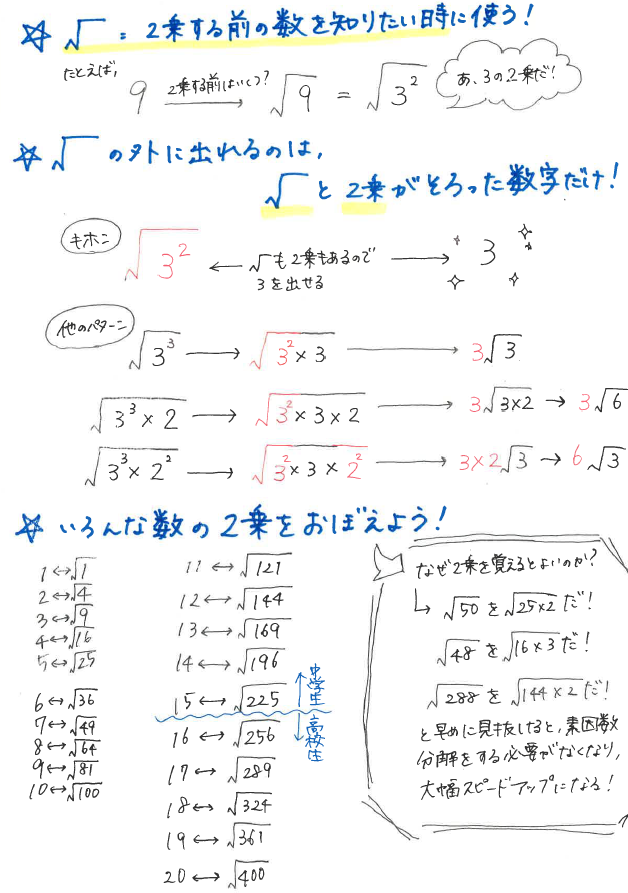 ☆ √ = 2乗する前の数を知りたい時に使う!
たとえば,
9 2乗する前はいくつ?→ √9 = √3² あ、3の2乗だ!
☆ √ の外に出れるのは,
√ と 2乗がそろった数字だけ!
キホン √3² ← √も2乗もあるので → 3
3を出せる
他のパターン
√3³ → √3²×3 → 3√3
√3³×2 → √3²×3×2 → 3√3×2 → 3√6
√3³×2² → √3²×3×2² → 3×2√3 → 6√3
☆ いろんな数の2乗をおぼえよう!
1↔√1
2↔√4
3↔√9
4↔√16
5↔√25
6↔√36
7↔√49
8↔√64
9↔√81
10↔√100
11↔√121
12↔√144
13↔√169
14↔√196
15↔√225
↑中学生
↓高校生
16↔√256
17↔√289
18↔√324
19↔√361
20↔√400
なぜ2乗を覚えるとよいのか?
↳ √50 を √25×2 だ!
√48 を √16×3 だ!
√288 を √144×2 だ!
と早めに見抜けると,素因数
分解をする必要がなくなり,
大幅スピードアップになる!